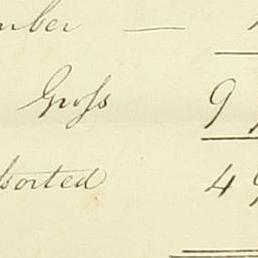 mber —
Gross 9
sorted 49